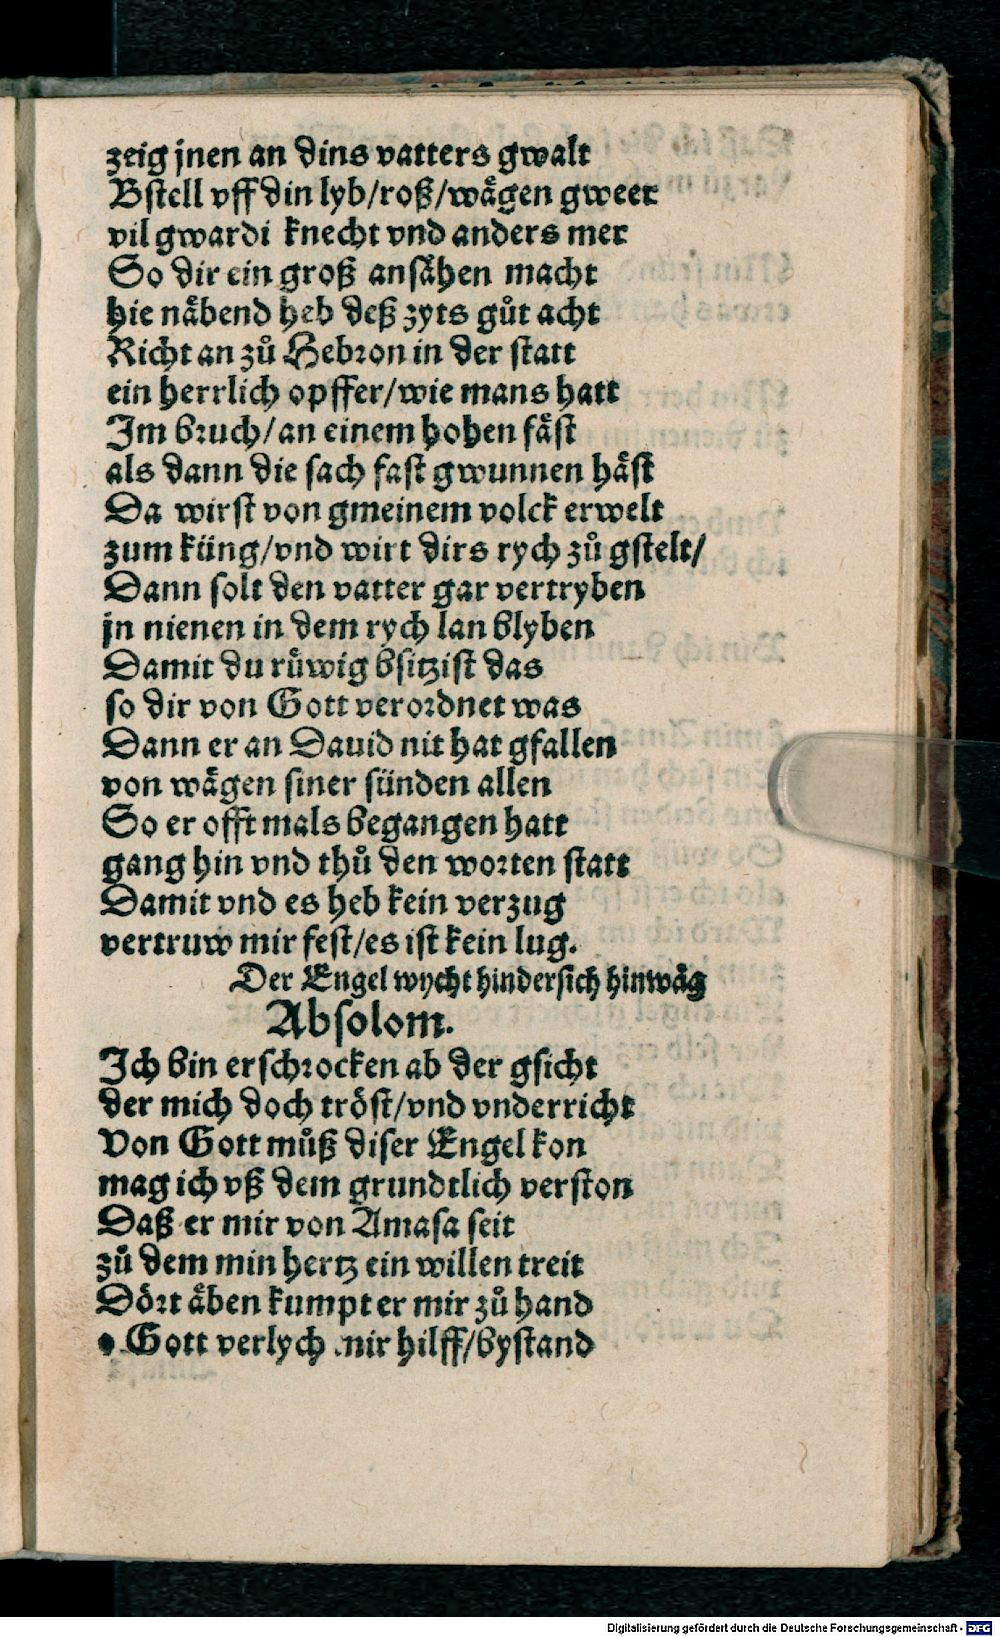 zeig jnen an dins vatters gwalt
Bstell vff din lyb/roß/wägen gweer
vil gwardi knecht vnd anders mer
So dir ein groß ansähen macht
hie näbend heb deß zyts gůt acht
Richt an zů Hebron in der statt
ein herrlich opffer/wie mans hatt
Im bruch/an einem hohen fäst
als dann die sach fast gwunnen häst
Da wirst von gmeinem volck erwelt
zum küng/vnd wirt dirs rych zů gstelt/
Dann solt den vatter gar vertryben
jn nienen in dem rych lan blyben
Damit du rüwig bsitzist das
so dir von Gott verordnet was
Dann er an Dauid nit hat gfallen
von wägen siner sünden allen
So er offt mals begangen hatt
gang hin vnd thů den worten statt
Damit vnd es heb kein verzug
vertruw mir fest/es ist kein lug.
Der Engel wycht hindersich hinwäg
Absolom.
Ich bin erschrocken ab der gsicht
der mich doch tröst/vnd vnderricht
Von Gott můß diser Engel kon
mag ich vß dem grundtlich verston
Daß er mir von Amasa seit
zů dem min hertz ein willen treit
Dört äben kumpt er mir zů hand
Gott verlych mir hilff/bystand
Digitalisierung gefördert durch die Deutsche Forschungsgemeinschaft - DFG